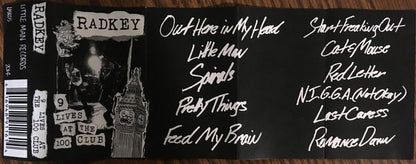 LITTLE MAN RECORDS
RADKEY
9 LIVES AT THE 100 CLUB
RADKEY
9
LIVES
AT THE
100 CLUB
Out Here in My Head
Little Man
Spirals
Pretty Things
Feed My Brain
Start Freaking Out
Cat & Mouse
Red Letter
N.I.G.G.A. (Not Okay)
Last Caress
Romance Dawn